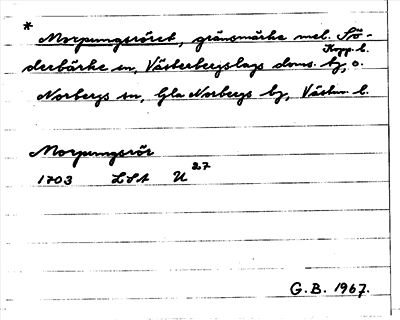 * Morpungsröret, gränsmärke mel. Sö-
derbärke sn, Västerbergslags doms. tg, Kopp. l. o.
Norbergs sn, Gla Norbergs bg, Västm. l.
Morpungsrör
1703 LSA U 27
G. B. 1967.